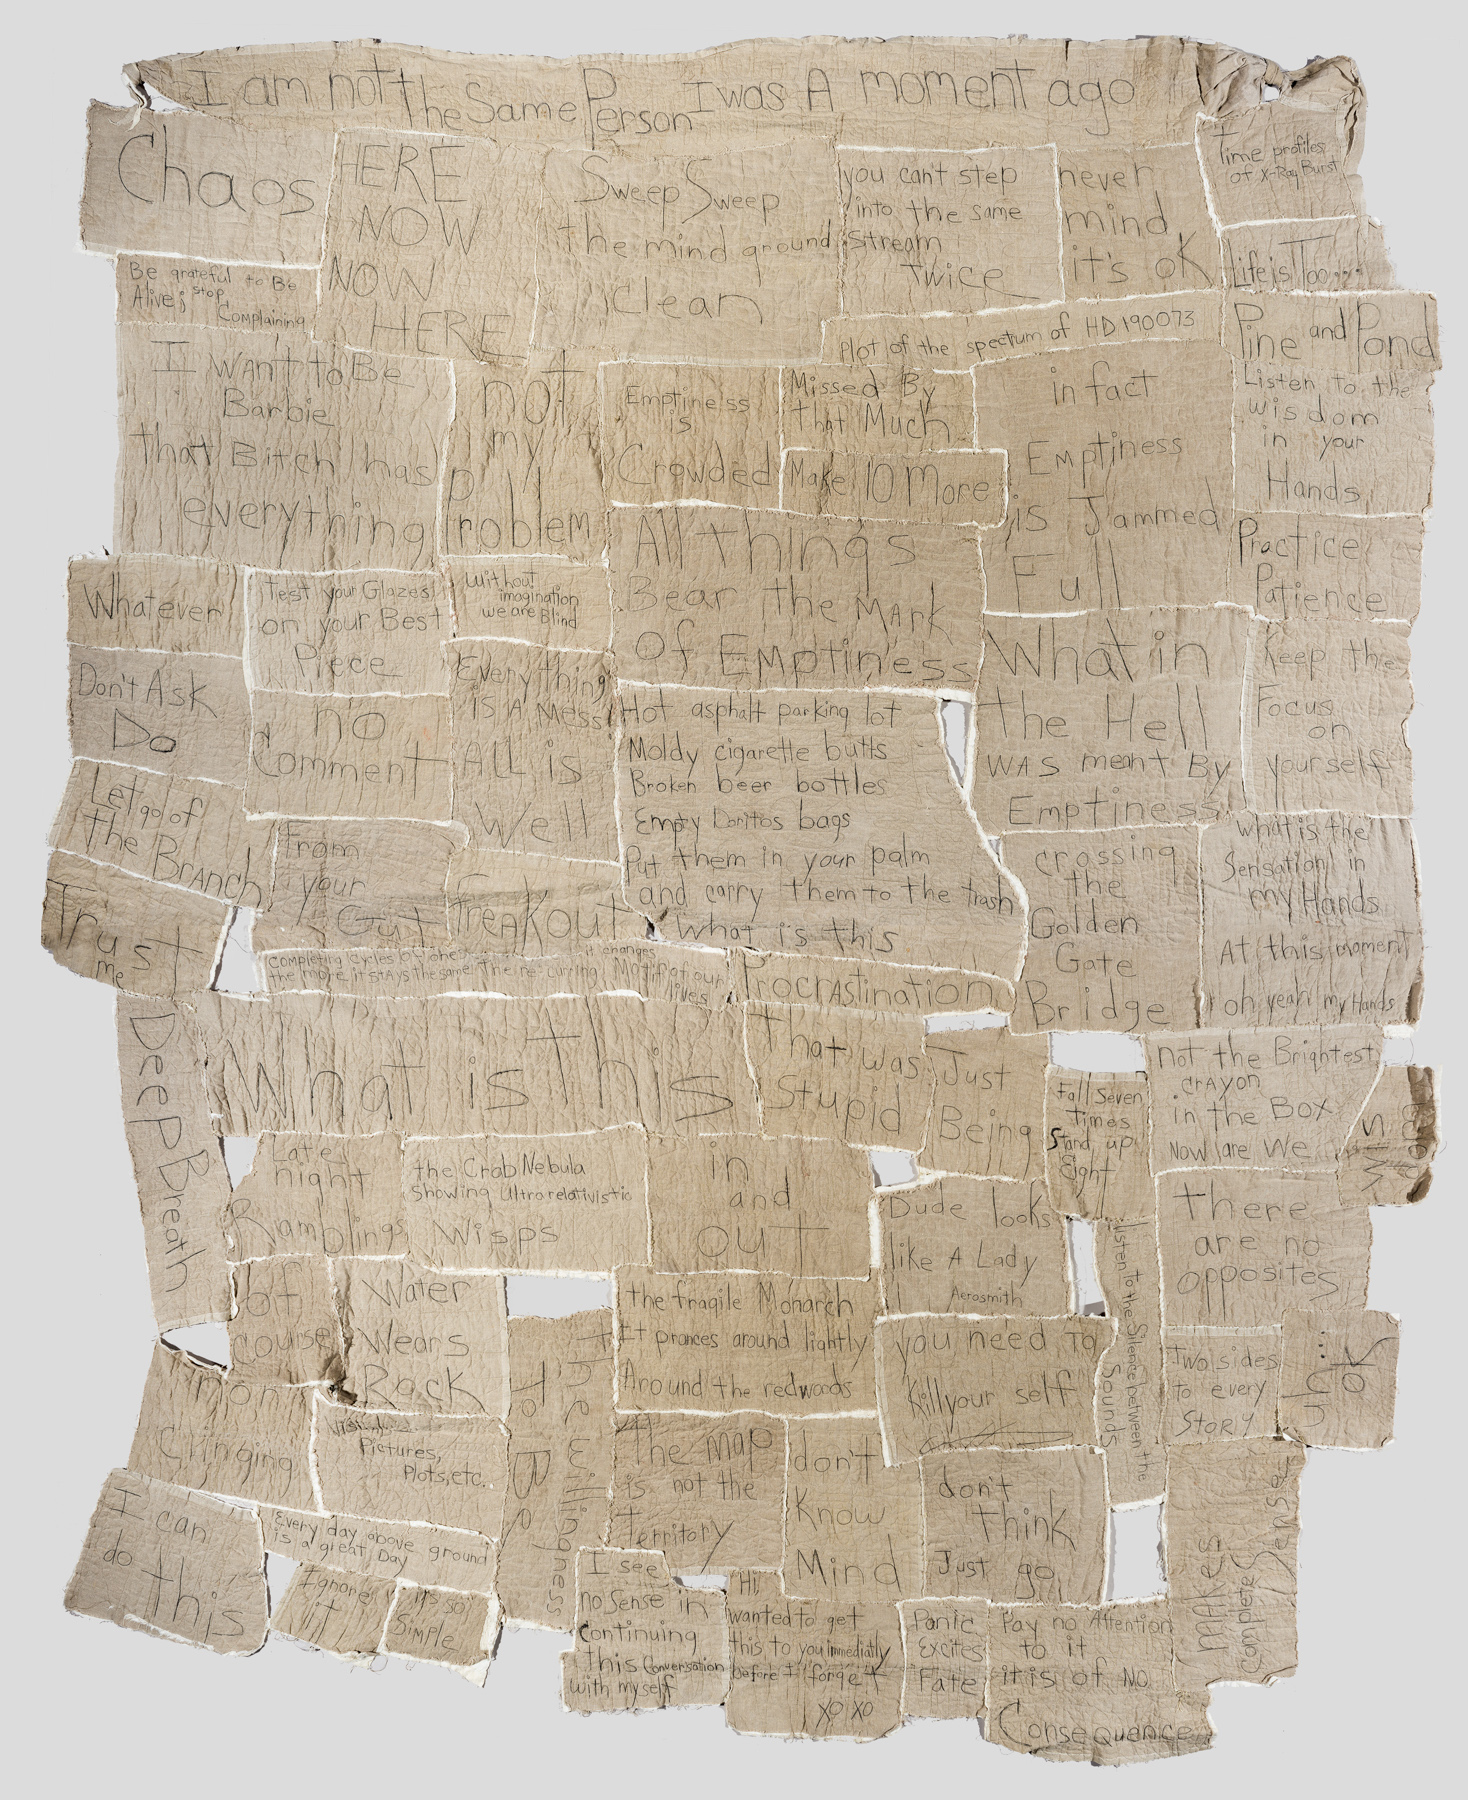 I am not the Same Person I was A moment ago
Chaos
HERE
NOW
NOW
HERE
Sweep Sweep
the mind ground
clean
you can't step
into the same
stream
twice
never
mind
it's OK
Time profiles
of X-Ray Burst
Life is Too...
Be grateful to Be
Alive; stop
Complaining
Plot of the spectrum of HD 190073
Pine and Pond
I want to Be
Barbie
that Bitch has
everything
not
my
p
roblem
Emptiness
is
Crowded
Missed By
that Much
Make 10 More
in fact
Emptiness
is Jammed
Full
Listen to the
wisdom
in your
Hands
Practice
Patience
All things
Bear the MArk
of Emptiness
Whatever
Test your Glazes
on your Best
Piece
Without
imagination
we are Blind
Don't Ask
Do
no
Comment
Every thing
is A mess
ALL is
Well
Hot asphalt parking lot
Moldy cigarette butts
Broken beer bottles
Empty Doritos bags
Put them in your palm
and carry them to the trash
What is this
What in
the Hell
was meant By
Emptiness
Keep the
Focus
on
yourself
Let go of
the BrAnch
From
your
Gut
freakout
crossing
the
Golden
Gate
Bridge
what is the
Sensation in
my Hands
At this moment
oh yeah my Hands
Trust
me
completing cycles
it changes
the more it stays the same the re-curring Motif of our
lives
ProcrAstination
DeepBreath
What is this
That was
Stupid
Just
Being
Fall Seven
Times
Stand up
Eight
not the Brightest
crAyon
in the Box
Now are we
Wild
Late
night
Ramblings
the Crab Nebula
showing Ultrarelativistic
Wisps
in
and
out
Dude looks
like A Lady
Aerosmith
Listen to the Silence between the
Sounds
there
are no
opposites
of
course
Water
Wears
Rock
the fragile Monarch
It prances around lightly
Around the redwoods
you need to
Kill your self
Two sides
to every
Story
uh...
ok
The willingness
To Be
non
Clinging
Pictures,
Plots, etc.
The map
is not the
territory
don't
Know
Mind
don't
think
Just go
MAkes
Complete Sense
I can
do this
Every day above ground
is a great Day
Ignore
it
it's so
Simple
I see
no Sense in
Continuing
this Conversation
with myself
Hi
wanted to get
this to you immediatly
before I forget
XO XO
Panic
Excites
Fate
Pay no Attention
to it
it is of No
Consequence